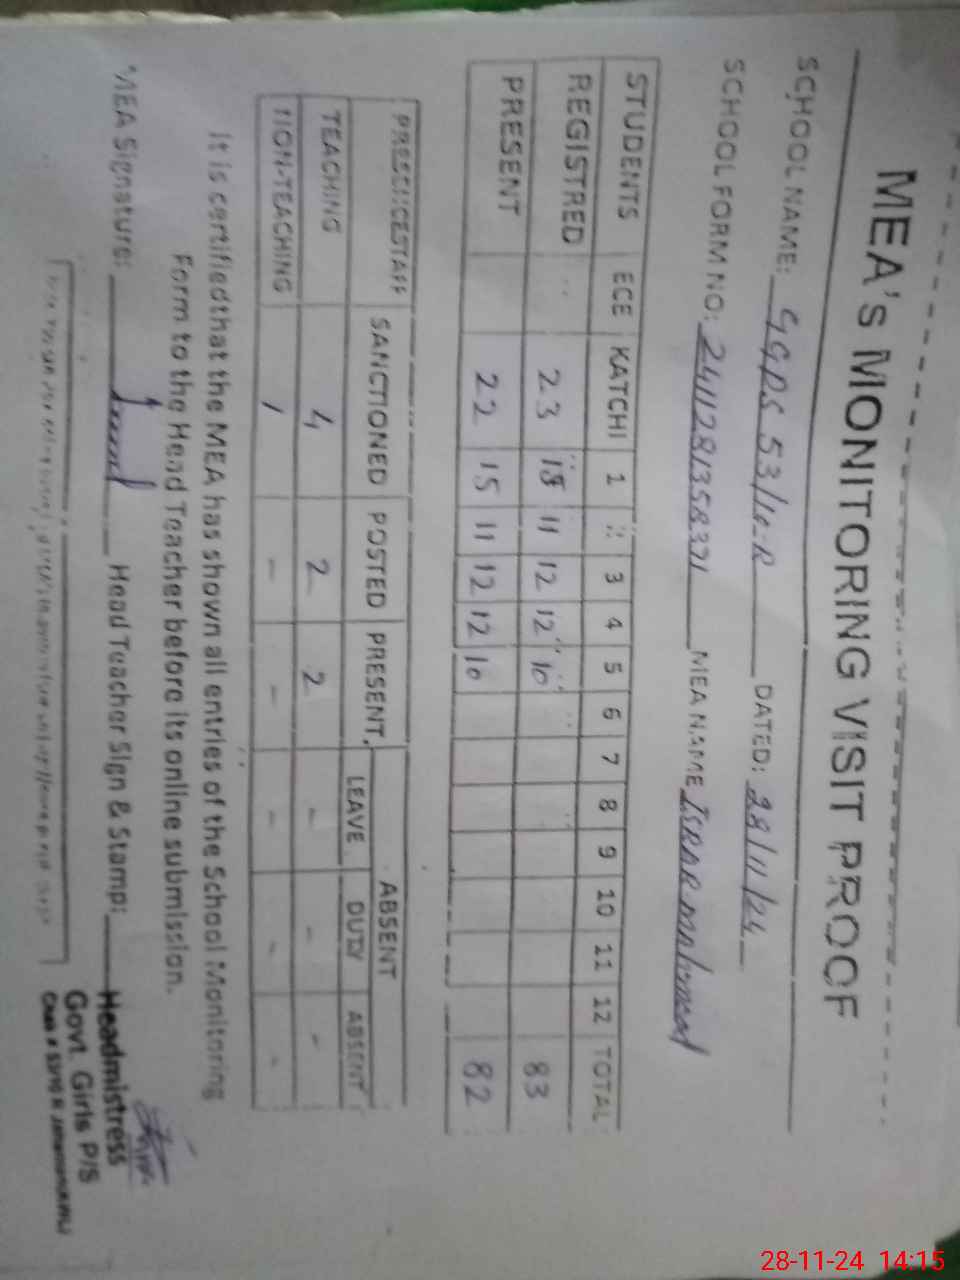 MEA'S MONITORING VISIT PROOF
SCHOOL NAME: GGPS 53/10-R DATED: 28/11/24
SCHOOL FORM NO: MEA NAME ISRAR mahmood
STUDENTS ECE KATCHI 1 3 4 5 6 7 8 9 10 11 12 TOTAL
REGISTRED 23 15 11 12 12 10 83
PRESENT 22 15 11 12 12 10 82
PRESENCESTAFF SANCTIONED POSTED PRESENT, ABSENT
LEAVE DUTY ABSENT
TEACHING 4 2 2 - - -
NON-TEACHING 1 - - - - -
It is certified that the MEA has shown all entries of the School Monitoring
Form to the Head Teacher before its online submission.
MEA Signature: Head Teacher Sign & Stamp:
Headmistress
Govt. Girls P/S
28-11-24 14:15